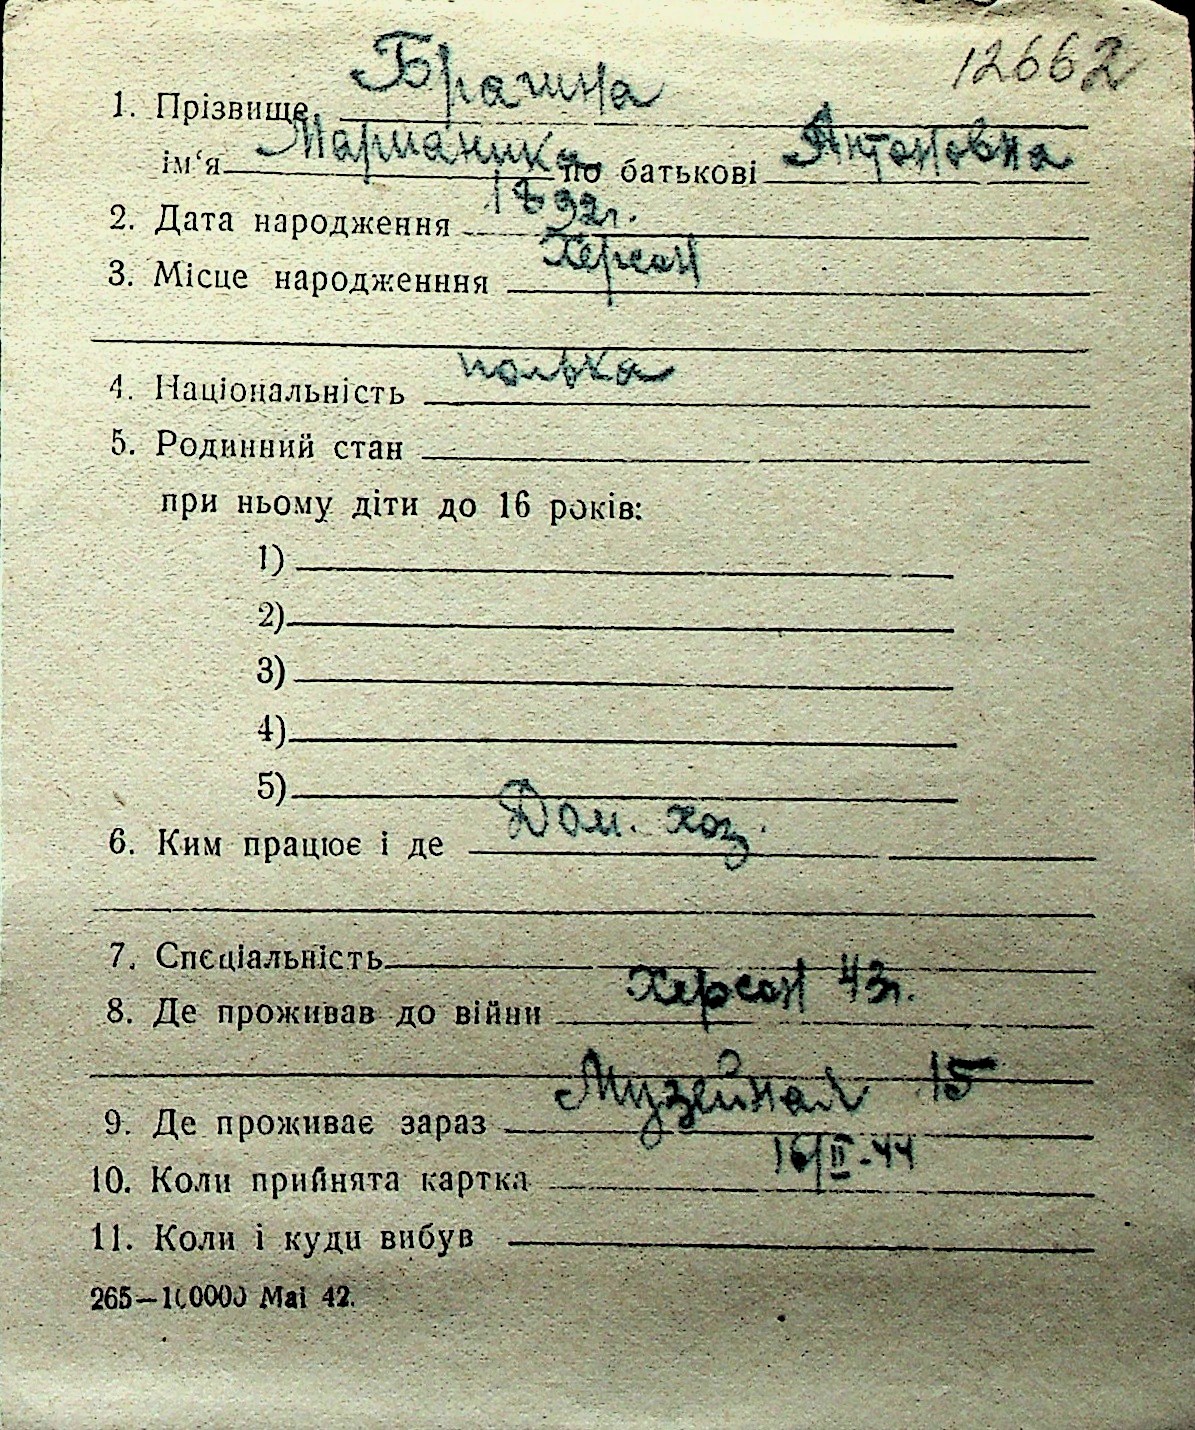 12662
1. Прізвище Брагина
ім‘я Марианика по батькові Антоновна
2. Дата народження 1892г.
3. Місце народженння Херсон
4. Національність полька
5. Родинний стан
при ньому діти до 16 років:
1)
2)
3)
4)
5)
6. Ким працює і де Дом. хоз.
7. Спєціальність
8. Де проживав до війни Херсон 43г.
9. Де проживає зараз Музейная 15
10. Коли прийнята картка 16/II-44
11. Коли і куди вибув
265—100000 Mai 42.